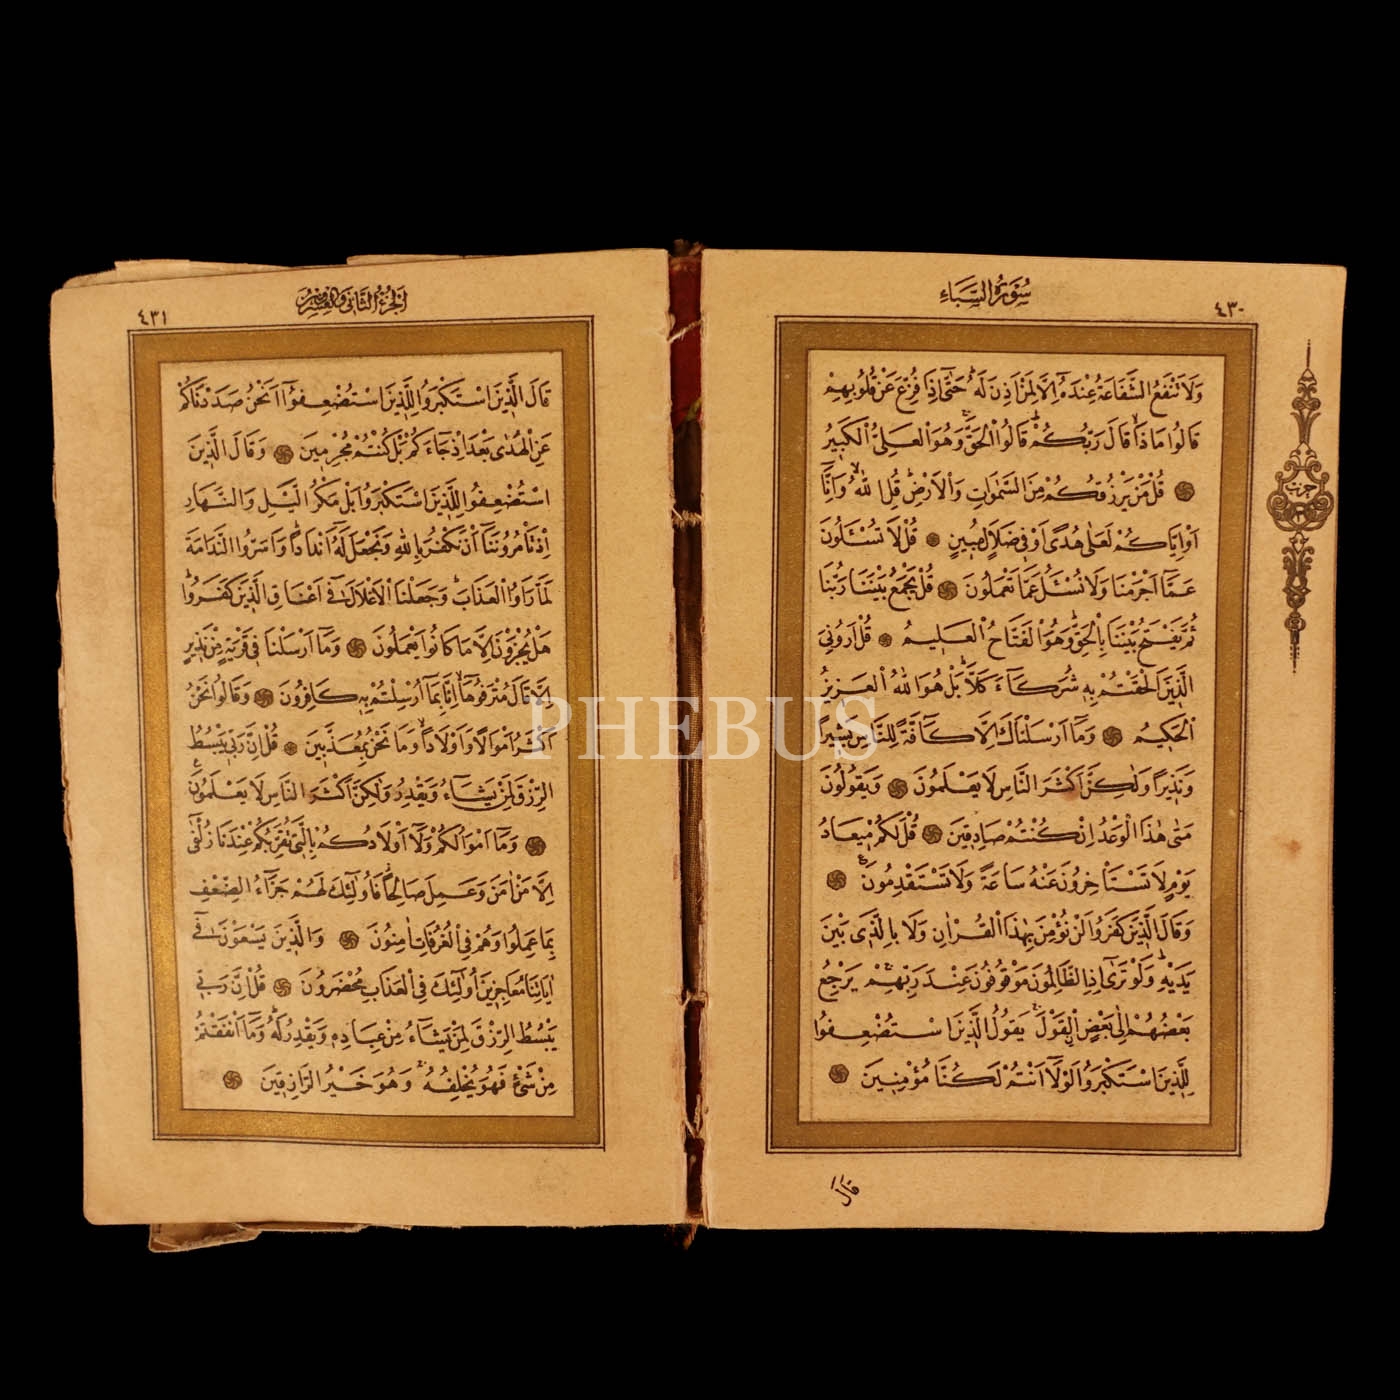 سُورَةُ السَّبَاءِ
٤٣٠
وَلَا تَنْفَعُ الشَّفَاعَةُ عِنْدَهُ اِلَّا لِمَنْ اَذِنَ لَهُ حَتّٰى اِذَا فُزِّعَ عَنْ قُلُوبِهِمْ
قَالُوا مَاذَا قَالَ رَبُّكُمْ قَالُوا الْحَقَّ وَهُوَ الْعَلِىُّ الْكَبِيرُ
قُلْ مَنْ يَرْزُقُكُمْ مِنَ السَّمٰوَاتِ وَالْاَرْضِ قُلِ اللّٰهُ وَاِنَّا
اَوْ اِيَّاكُمْ لَعَلٰى هُدًى اَوْ فِى ضَلَالٍ مُبِينٍ قُلْ لَا تُسْئَلُونَ
عَمَّا اَجْرَمْنَا وَلَا نُسْئَلُ عَمَّا تَعْمَلُونَ قُلْ يَجْمَعُ بَيْنَنَا رَبُّنَا
ثُمَّ يَفْتَحُ بَيْنَنَا بِالْحَقِّ وَهُوَ الْفَتَّاحُ الْعَلِيمُ قُلْ اَرُونِىَ
الَّذِينَ اَلْحَقْتُمْ بِهِ شُرَكَاءَ كَلَّا بَلْ هُوَ اللّٰهُ الْعَزِيزُ
الْحَكِيمُ وَمَا اَرْسَلْنَاكَ اِلَّا كَافَّةً لِلنَّاسِ بَشِيرًا
وَنَذِيرًا وَلٰكِنَّ اَكْثَرَ النَّاسِ لَا يَعْلَمُونَ وَيَقُولُونَ
مَتٰى هٰذَا الْوَعْدُ اِنْ كُنْتُمْ صَادِقِينَ قُلْ لَكُمْ مِيعَادُ
يَوْمٍ لَا تَسْتَاْخِرُونَ عَنْهُ سَاعَةً وَلَا تَسْتَقْدِمُونَ
وَقَالَ الَّذِينَ كَفَرُوا لَنْ نُؤْمِنَ بِهٰذَا الْقُرْاٰنِ وَلَا بِالَّذِى بَيْنَ
يَدَيْهِ وَلَوْ تَرٰى اِذِ الظَّالِمُونَ مَوْقُوفُونَ عِنْدَ رَبِّهِمْ يَرْجِعُ
بَعْضُهُمْ اِلٰى بَعْضٍ الْقَوْلَ يَقُولُ الَّذِينَ اسْتُضْعِفُوا
لِلَّذِينَ اسْتَكْبَرُوا لَوْلَا اَنْتُمْ لَكُنَّا مُؤْمِنِينَ
قَالَ
حزب
اَلْجُزْءُ الثَّانِى وَالْعِشْرُونَ
٤٣١
قَالَ الَّذِينَ اسْتَكْبَرُوا لِلَّذِينَ اسْتُضْعِفُوا اَنَحْنُ صَدَدْنَاكُمْ
عَنِ الْهُدٰى بَعْدَ اِذْ جَاءَكُمْ بَلْ كُنْتُمْ مُجْرِمِينَ وَقَالَ الَّذِينَ
اسْتُضْعِفُوا لِلَّذِينَ اسْتَكْبَرُوا بَلْ مَكْرُ الَّيْلِ وَالنَّهَارِ
اِذْ تَاْمُرُونَنَا اَنْ نَكْفُرَ بِاللّٰهِ وَنَجْعَلَ لَهُ اَنْدَادًا وَاَسَرُّوا النَّدَامَةَ
لَمَّا رَاَوُا الْعَذَابَ وَجَعَلْنَا الْاَغْلَالَ فِى اَعْنَاقِ الَّذِينَ كَفَرُوا
هَلْ يُجْزَوْنَ اِلَّا مَا كَانُوا يَعْمَلُونَ وَمَا اَرْسَلْنَا فِى قَرْيَةٍ مِنْ نَذِيرٍ
اِلَّا قَالَ مُتْرَفُوهَا اِنَّا بِمَا اُرْسِلْتُمْ بِهِ كَافِرُونَ وَقَالُوا نَحْنُ
اَكْثَرُ اَمْوَالًا وَاَوْلَادًا وَمَا نَحْنُ بِمُعَذَّبِينَ قُلْ اِنَّ رَبِّى يَبْسُطُ
الرِّزْقَ لِمَنْ يَشَاءُ وَيَقْدِرُ وَلٰكِنَّ اَكْثَرَ النَّاسِ لَا يَعْلَمُونَ
وَمَا اَمْوَالُكُمْ وَلَا اَوْلَادُكُمْ بِالَّتِى تُقَرِّبُكُمْ عِنْدَنَا زُلْفٰى
اِلَّا مَنْ اٰمَنَ وَعَمِلَ صَالِحًا فَاُولٰئِكَ لَهُمْ جَزَاءُ الضِّعْفِ
بِمَا عَمِلُوا وَهُمْ فِى الْغُرُفَاتِ اٰمِنُونَ وَالَّذِينَ يَسْعَوْنَ فِى
اٰيَاتِنَا مُعَاجِزِينَ اُولٰئِكَ فِى الْعَذَابِ مُحْضَرُونَ قُلْ اِنَّ رَبِّى
يَبْسُطُ الرِّزْقَ لِمَنْ يَشَاءُ مِنْ عِبَادِهِ وَيَقْدِرُ لَهُ وَمَا اَنْفَقْتُمْ
مِنْ شَىْءٍ فَهُوَ يُخْلِفُهُ وَهُوَ خَيْرُ الرَّازِقِينَ
PHEBUS